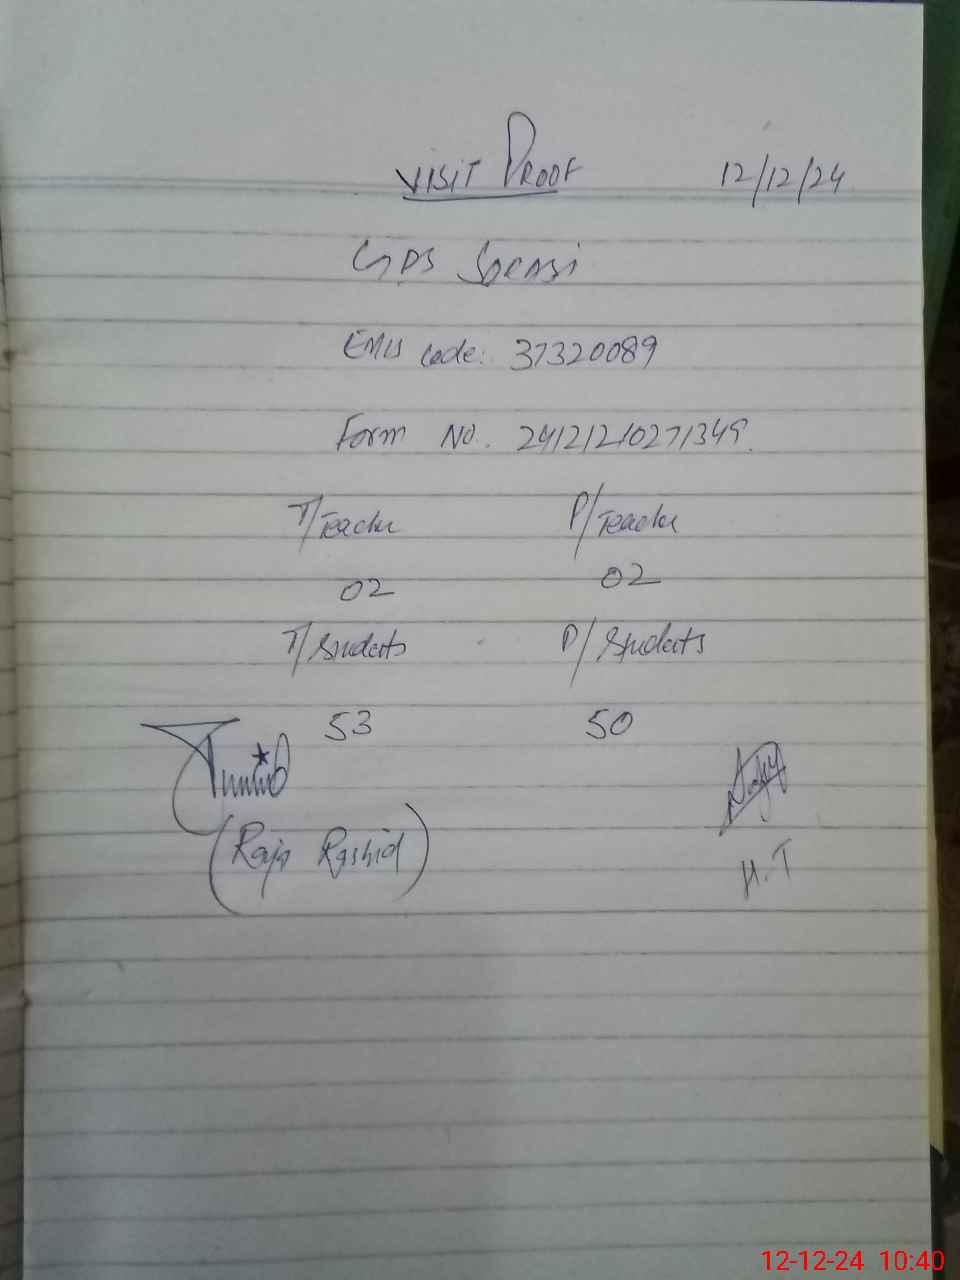 VISIT PROOF 12/12/24
GPS
EMIS Code: 37320089
Form No. 24121210271349
T/Teacher P/Teacher
02 02
T/Students P/Students
53 50
(Raja Rashid)
H.T
12-12-24 10:40